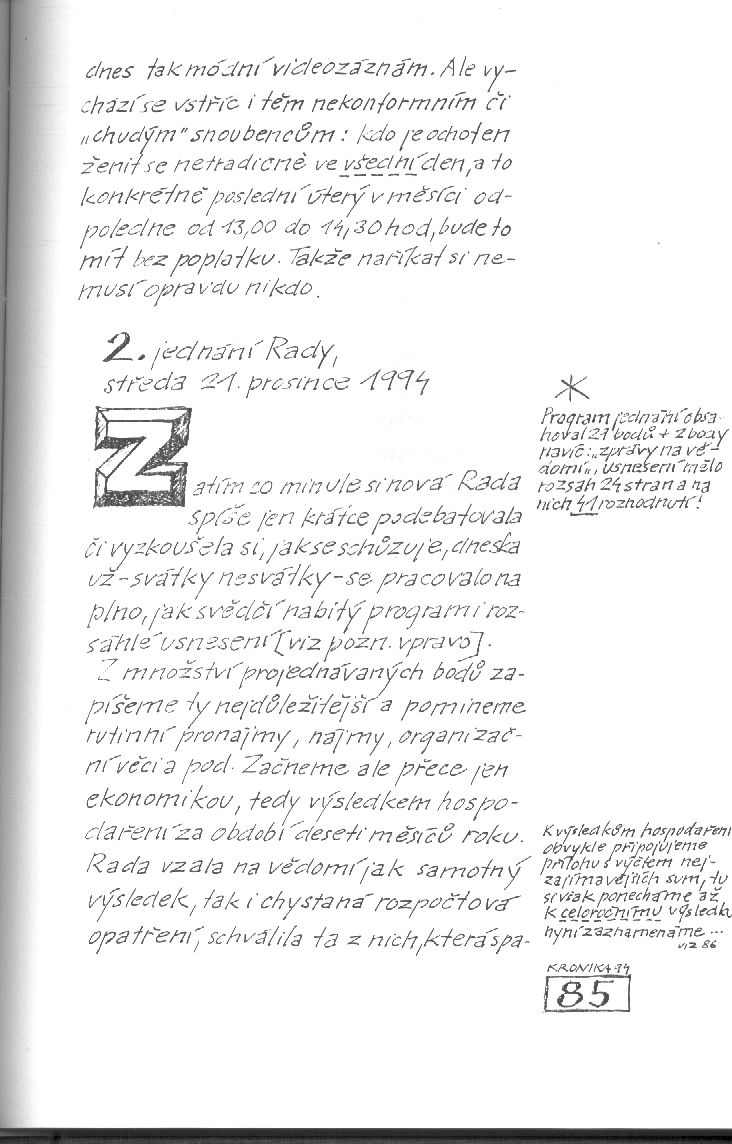 dnes tak módní videozáznám. Ale vy-
chází se vstříc i těm nekonformním či
„chudým" snoubencům: kdo je ochoten
ženit se netradičně ve všední den, a to
konkrétně poslední úterý v měsíci od-
poledne od 13,00 do 14,30 hod, bude to
mít bez poplatku. Takže naříkat si ne-
musí opravdu nikdo.
2. jednání Rady,
středa 21. prosince 1994
Zatím co minule si nová Rada
spíše jen krátce podebatovala
či vyzkoušela si, jak se schůzuje, dneska
už - svátky nesvátky - se pracovalo na
plno, jak svědčí nabitý program i roz-
sáhlé usnesení [viz pozn. vpravo].
Z množství projednávaných bodů za-
píšeme ty nejdůležitější a pomineme
rutinní pronájmy, nájmy, organizač-
ní věci a pod. Začneme ale přece jen
ekonomikou, tedy výsledkem hospo-
daření za období deseti měsíců roku.
Rada vzala na vědomí jak samotný
výsledek, tak i chystaná rozpočtová
opatření, schválila ta z nich, která spa-
*
Program jednání obsa-
hoval 21 bodů + 2 body
navíc: „zprávy na vě-
domí„, usnesení mělo
rozsah 24 stran a na
nich 41 rozhodnutí!
K výsledkům hospodaření
obvykle připojujeme
přílohu s výčtem nej-
zajímavějších sum, tu
si však ponecháme až
k celoročnímu výsledku
nyní zaznamenáme...
viz 86
KRONIKA 94
85